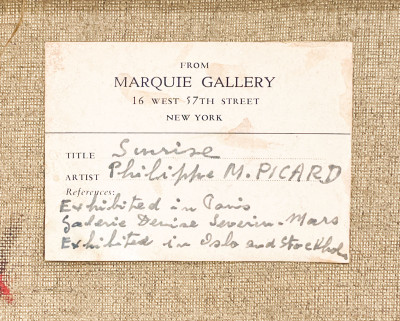 FROM
MARQUIE GALLERY
16 WEST 57TH STREET
NEW YORK
TITLE Sunrise
ARTIST Philippe M. PICARD
References:
Exhibited in Paris
Galerie Denise Severin-Mars
Exhibited in Oslo and Stockholm